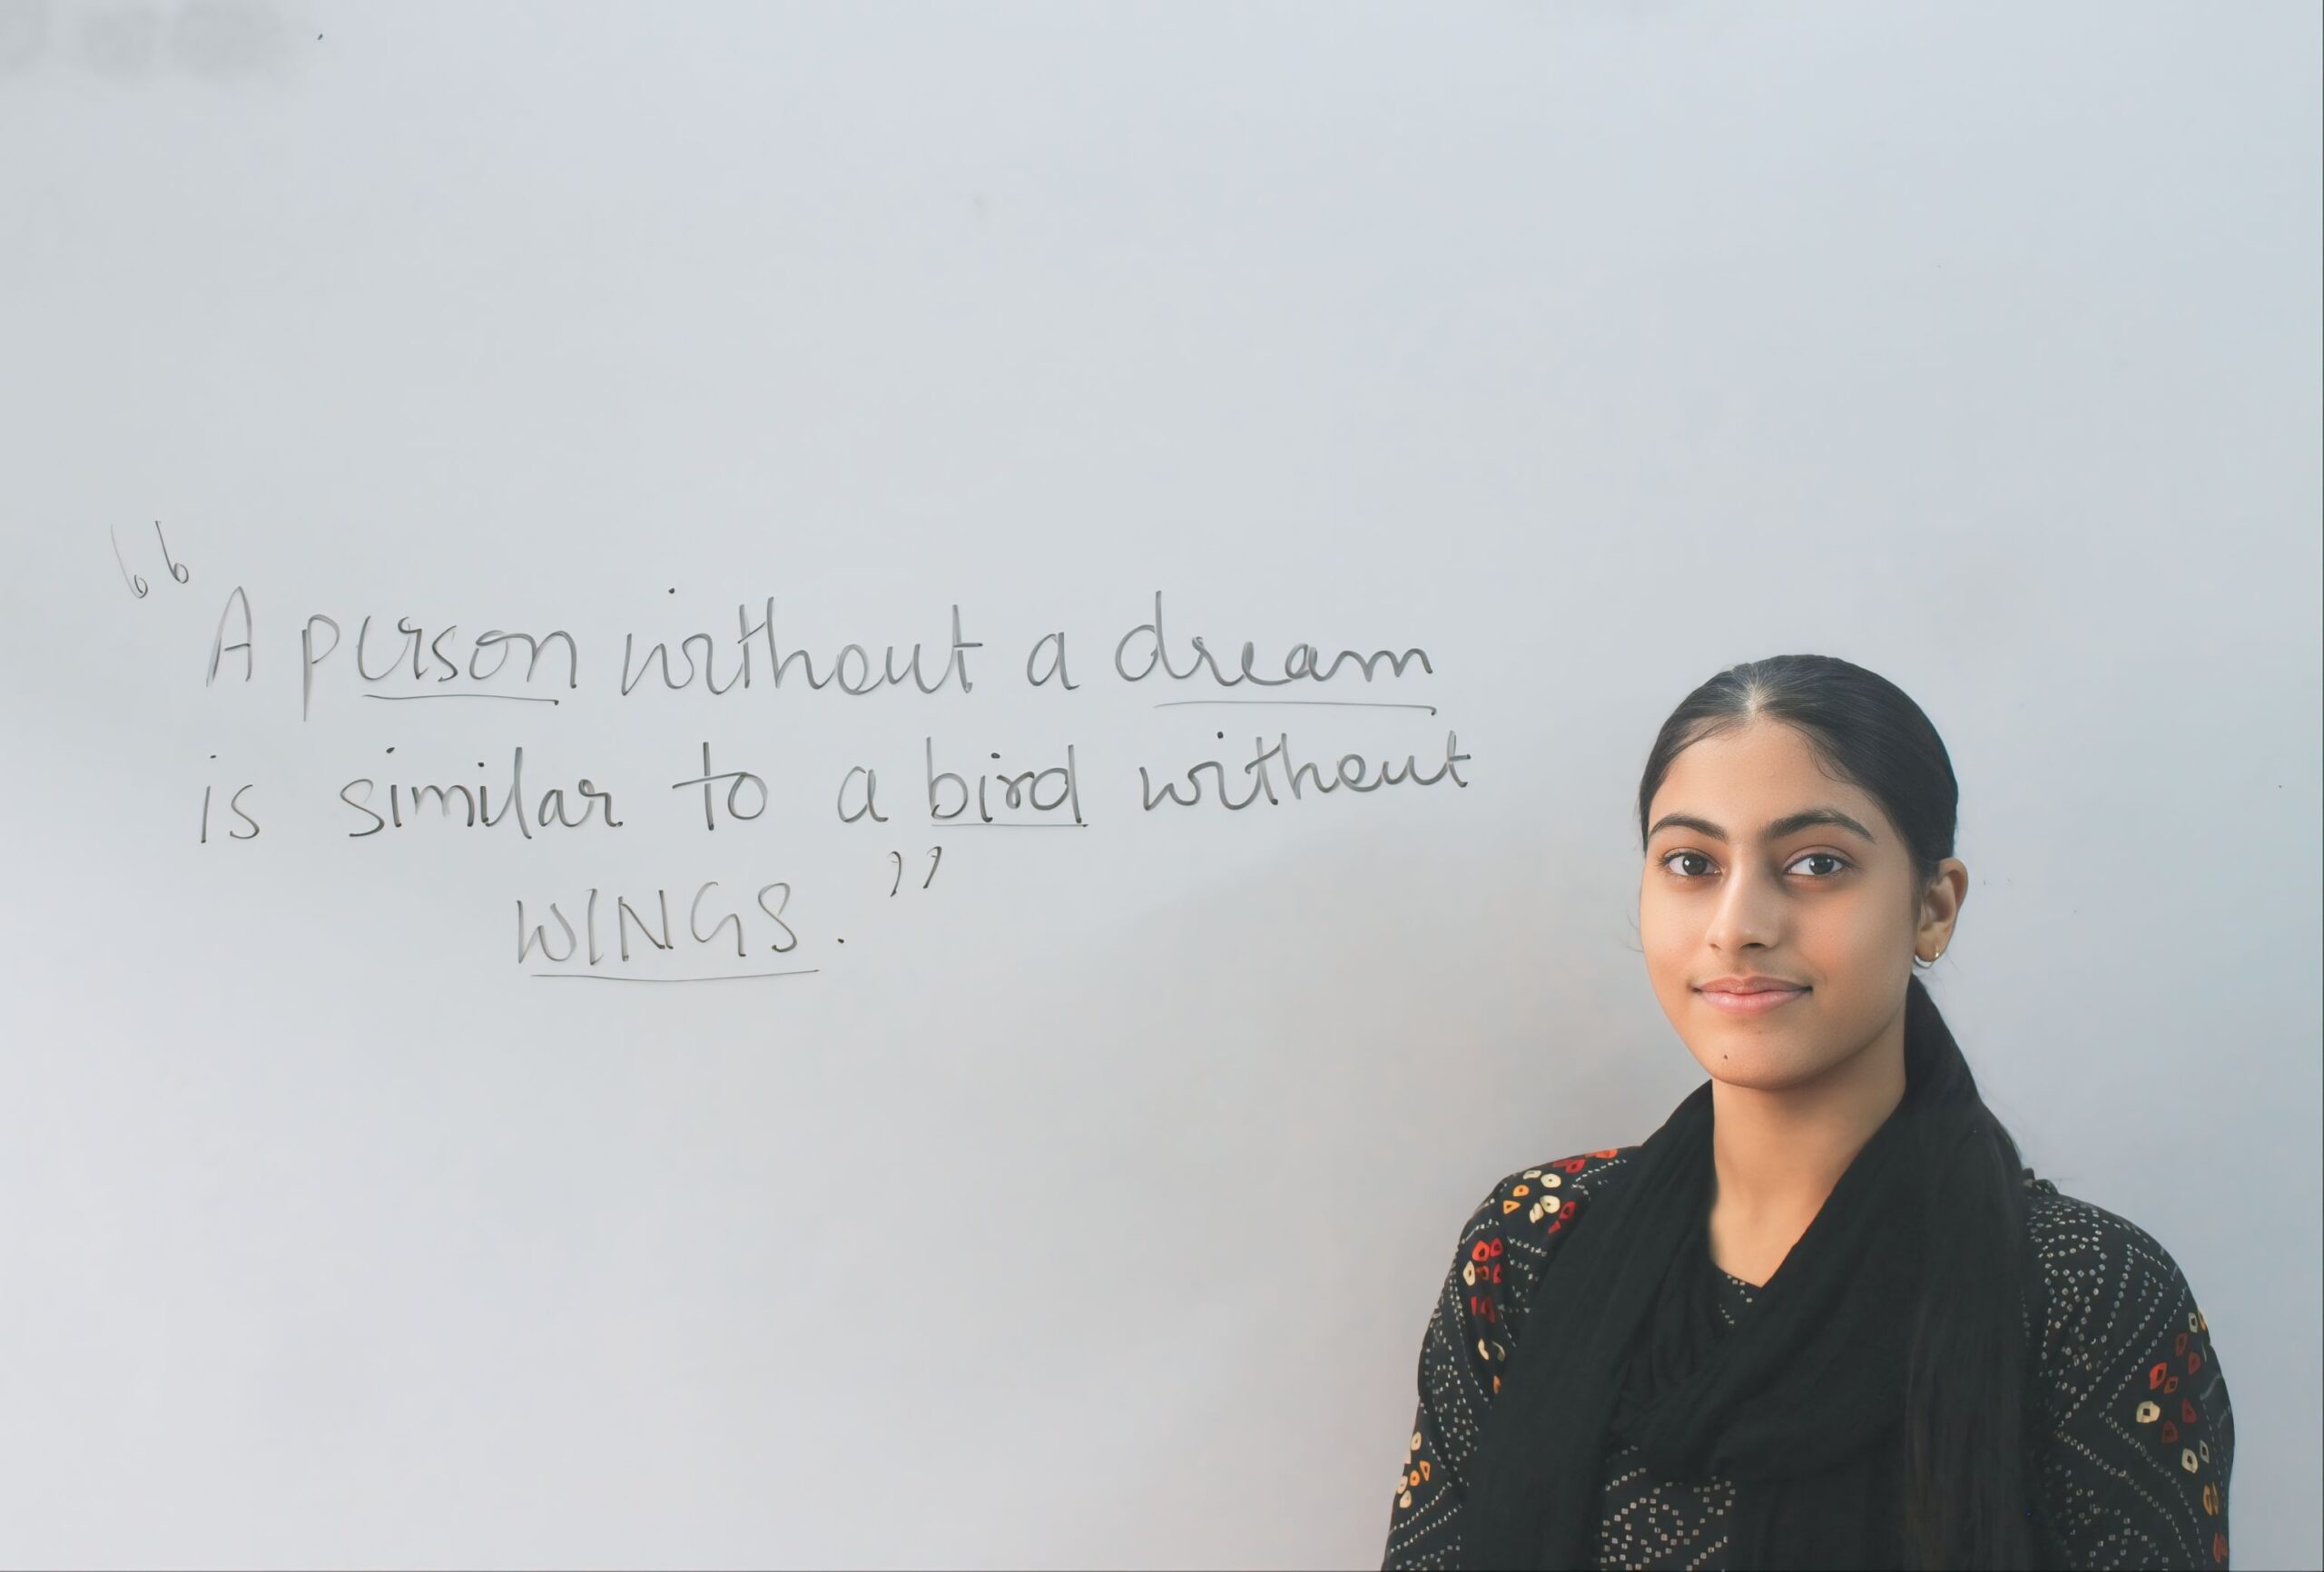 “A person without a dream
is similar to a bird without
WINGS.”